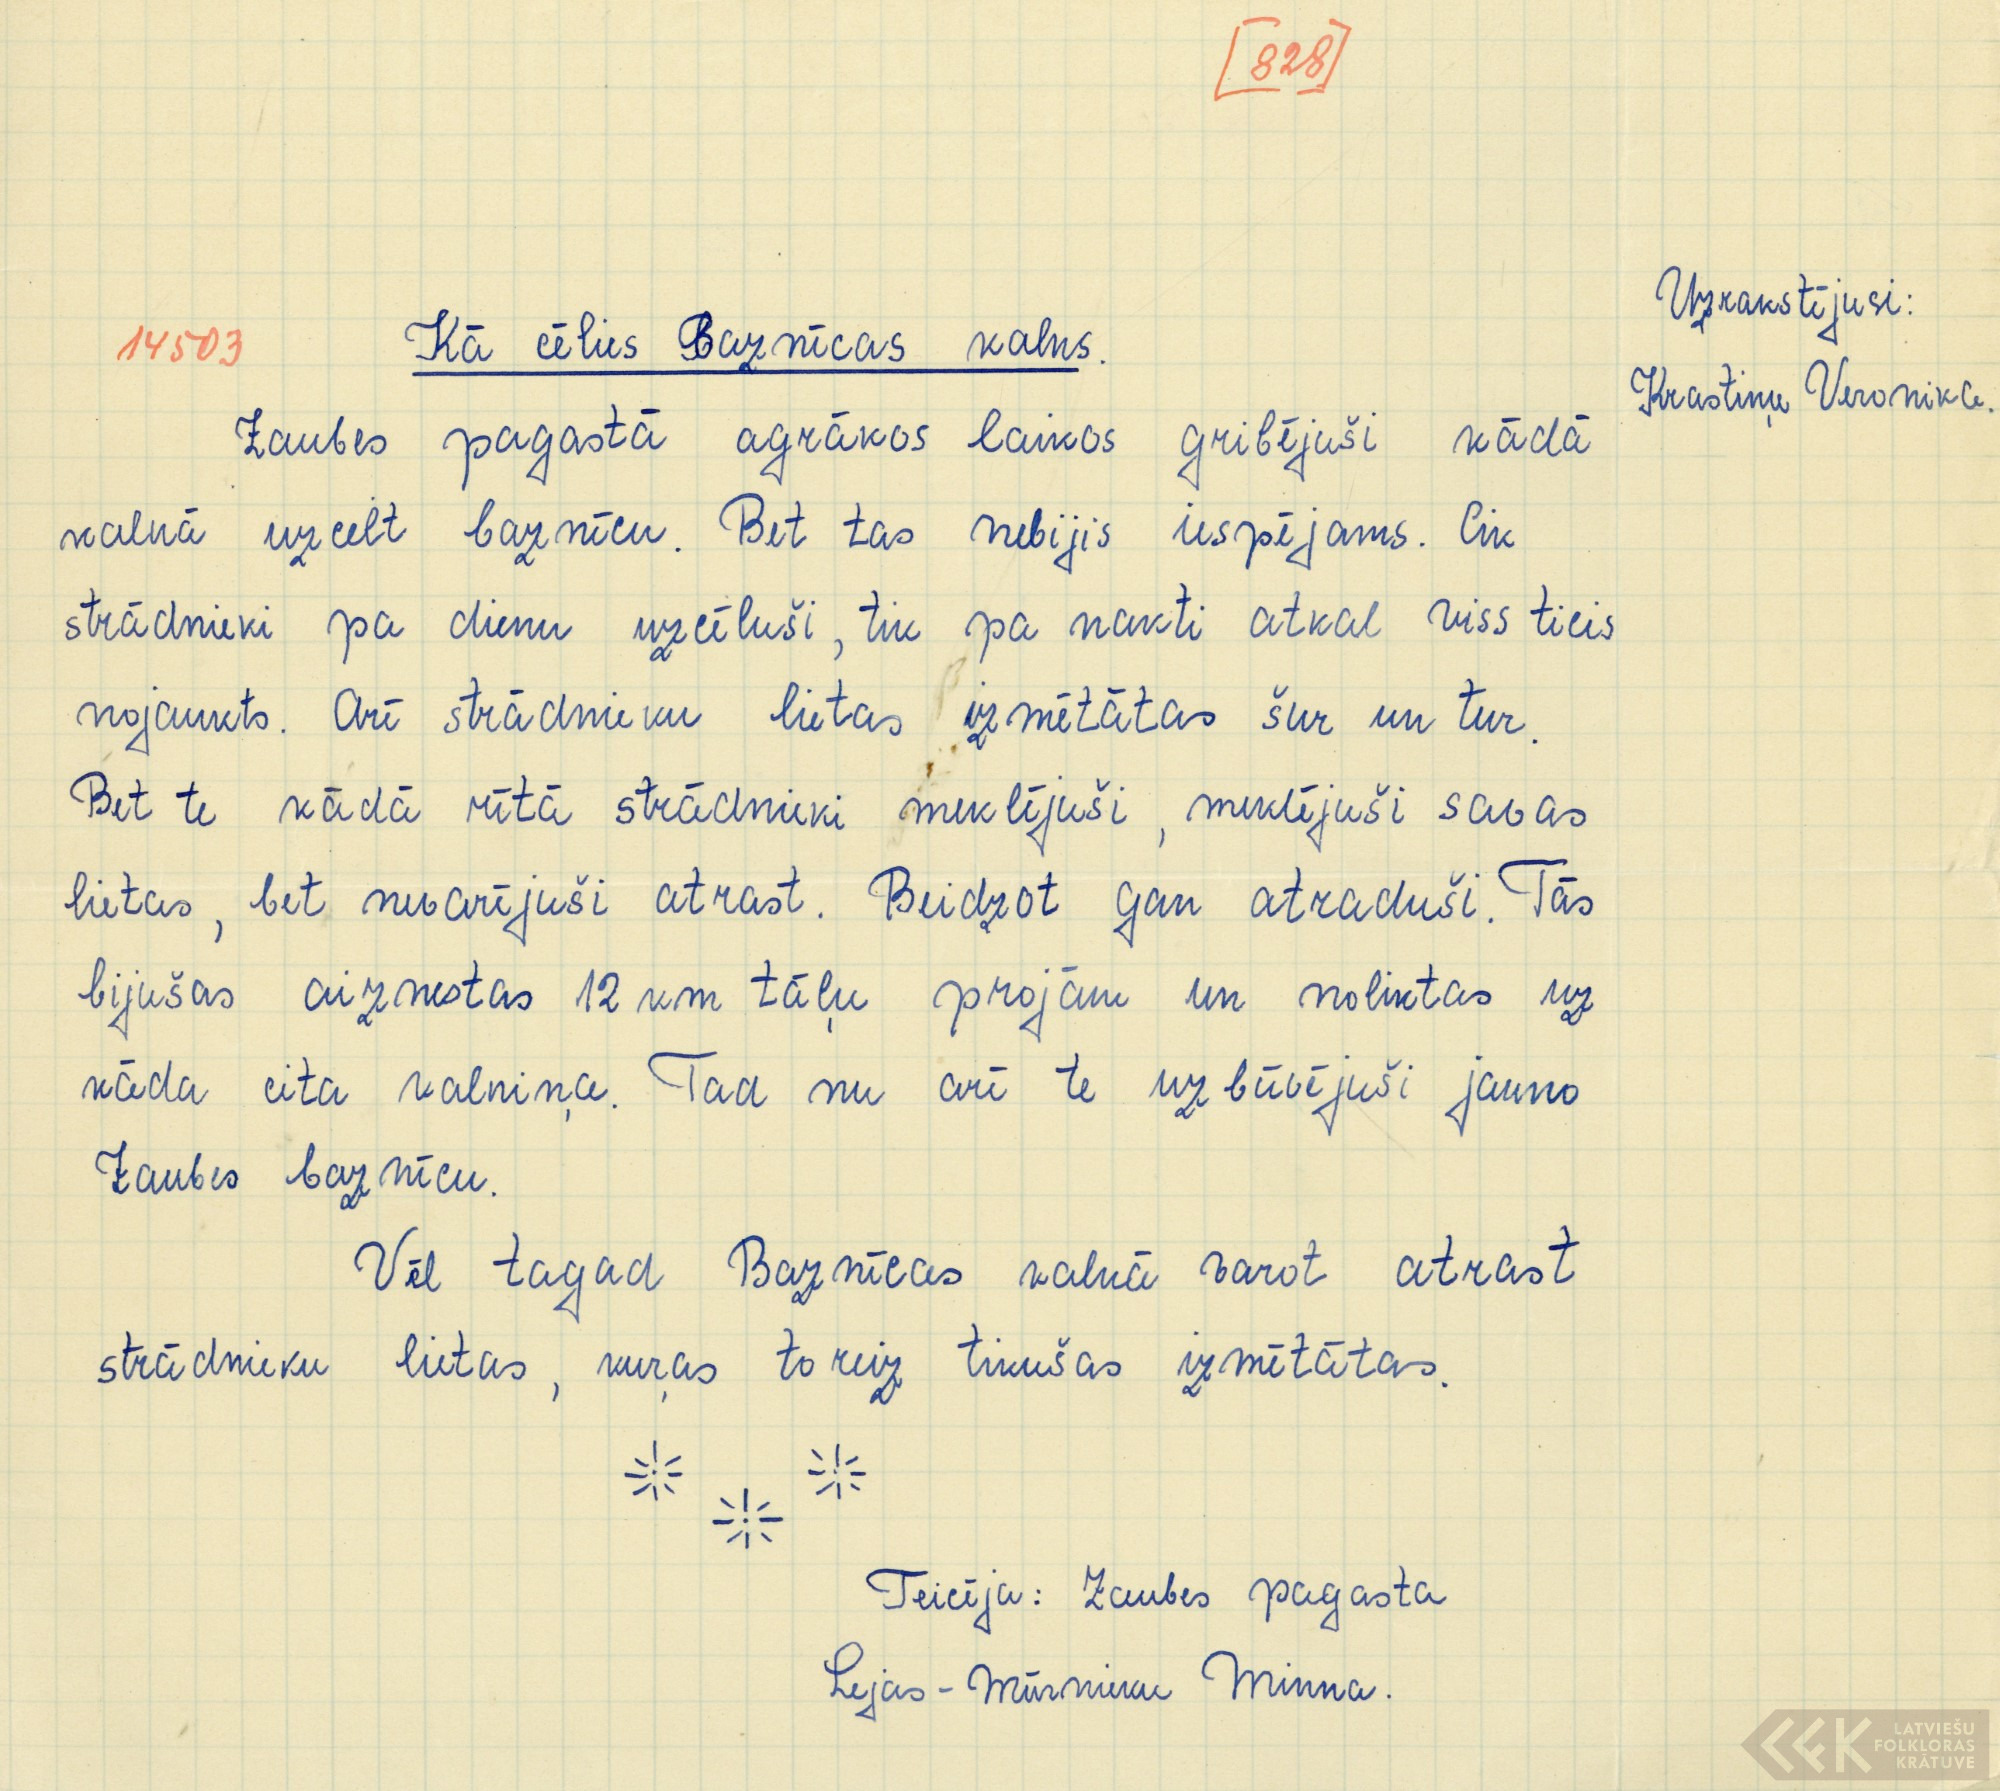 [828]
Uzrakstējusi:
14503 Kā cēlies Baznīcas kalns.
Krastiņu Veronika.
Zaubes pagastā agrākos laikos gribējuši kādā
kalnā uzcelt baznīcu. Bet tas nebijis iespējams. Cik
strādnieki pa dienu uzcēluši, tik pa nakti atkal viss ticis
nojaukts. Arī strādnieku lietas izmētātas šur un tur.
Bet te kādā rītā strādnieki meklējuši, meklējuši savas
lietas, bet nevarējuši atrast. Beidzot gan atraduši. Tās
bijušas aiznestas 12 km tāļu projām un noliktas uz
kāda cita kalniņa. Tad nu arī te uzbūvējuši jauno
Zaubes baznīcu.
Vēl tagad Baznīcas kalnā varot atrast
strādnieku lietas, kuŗas toreiz tikušas izmētātas.
Teicēja: Zaubes pagasta
Lejas-Mūrnieku Minna.
LATVIEŠU
FOLKLORAS
KRĀTUVE